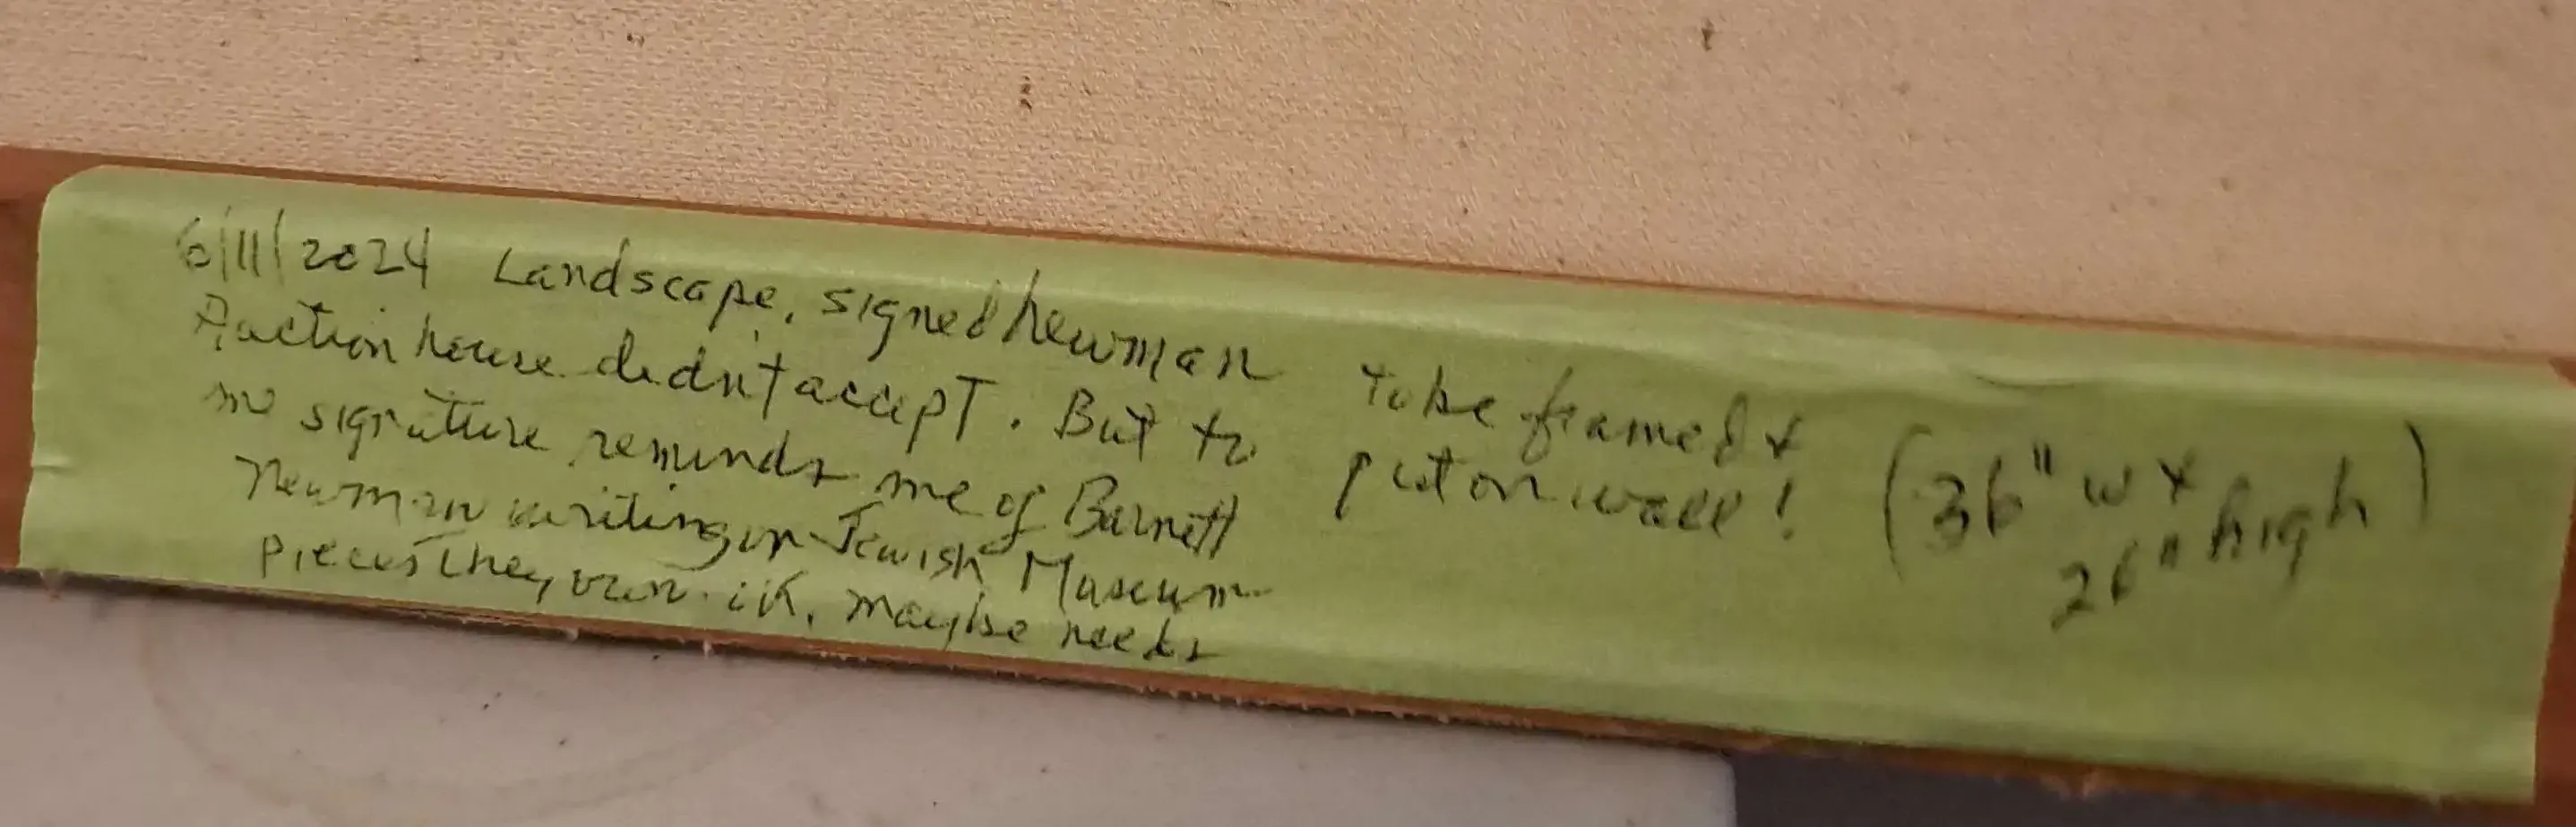 6/11/2024 Landscape, signed Newman
Auction house didn't accept. But to
me signature reminds me of Barnett
Newman writing on Jewish Museum
pieces they own. iK. maybe needs
to be framed &
put on wall!
(36" w x
26" high)